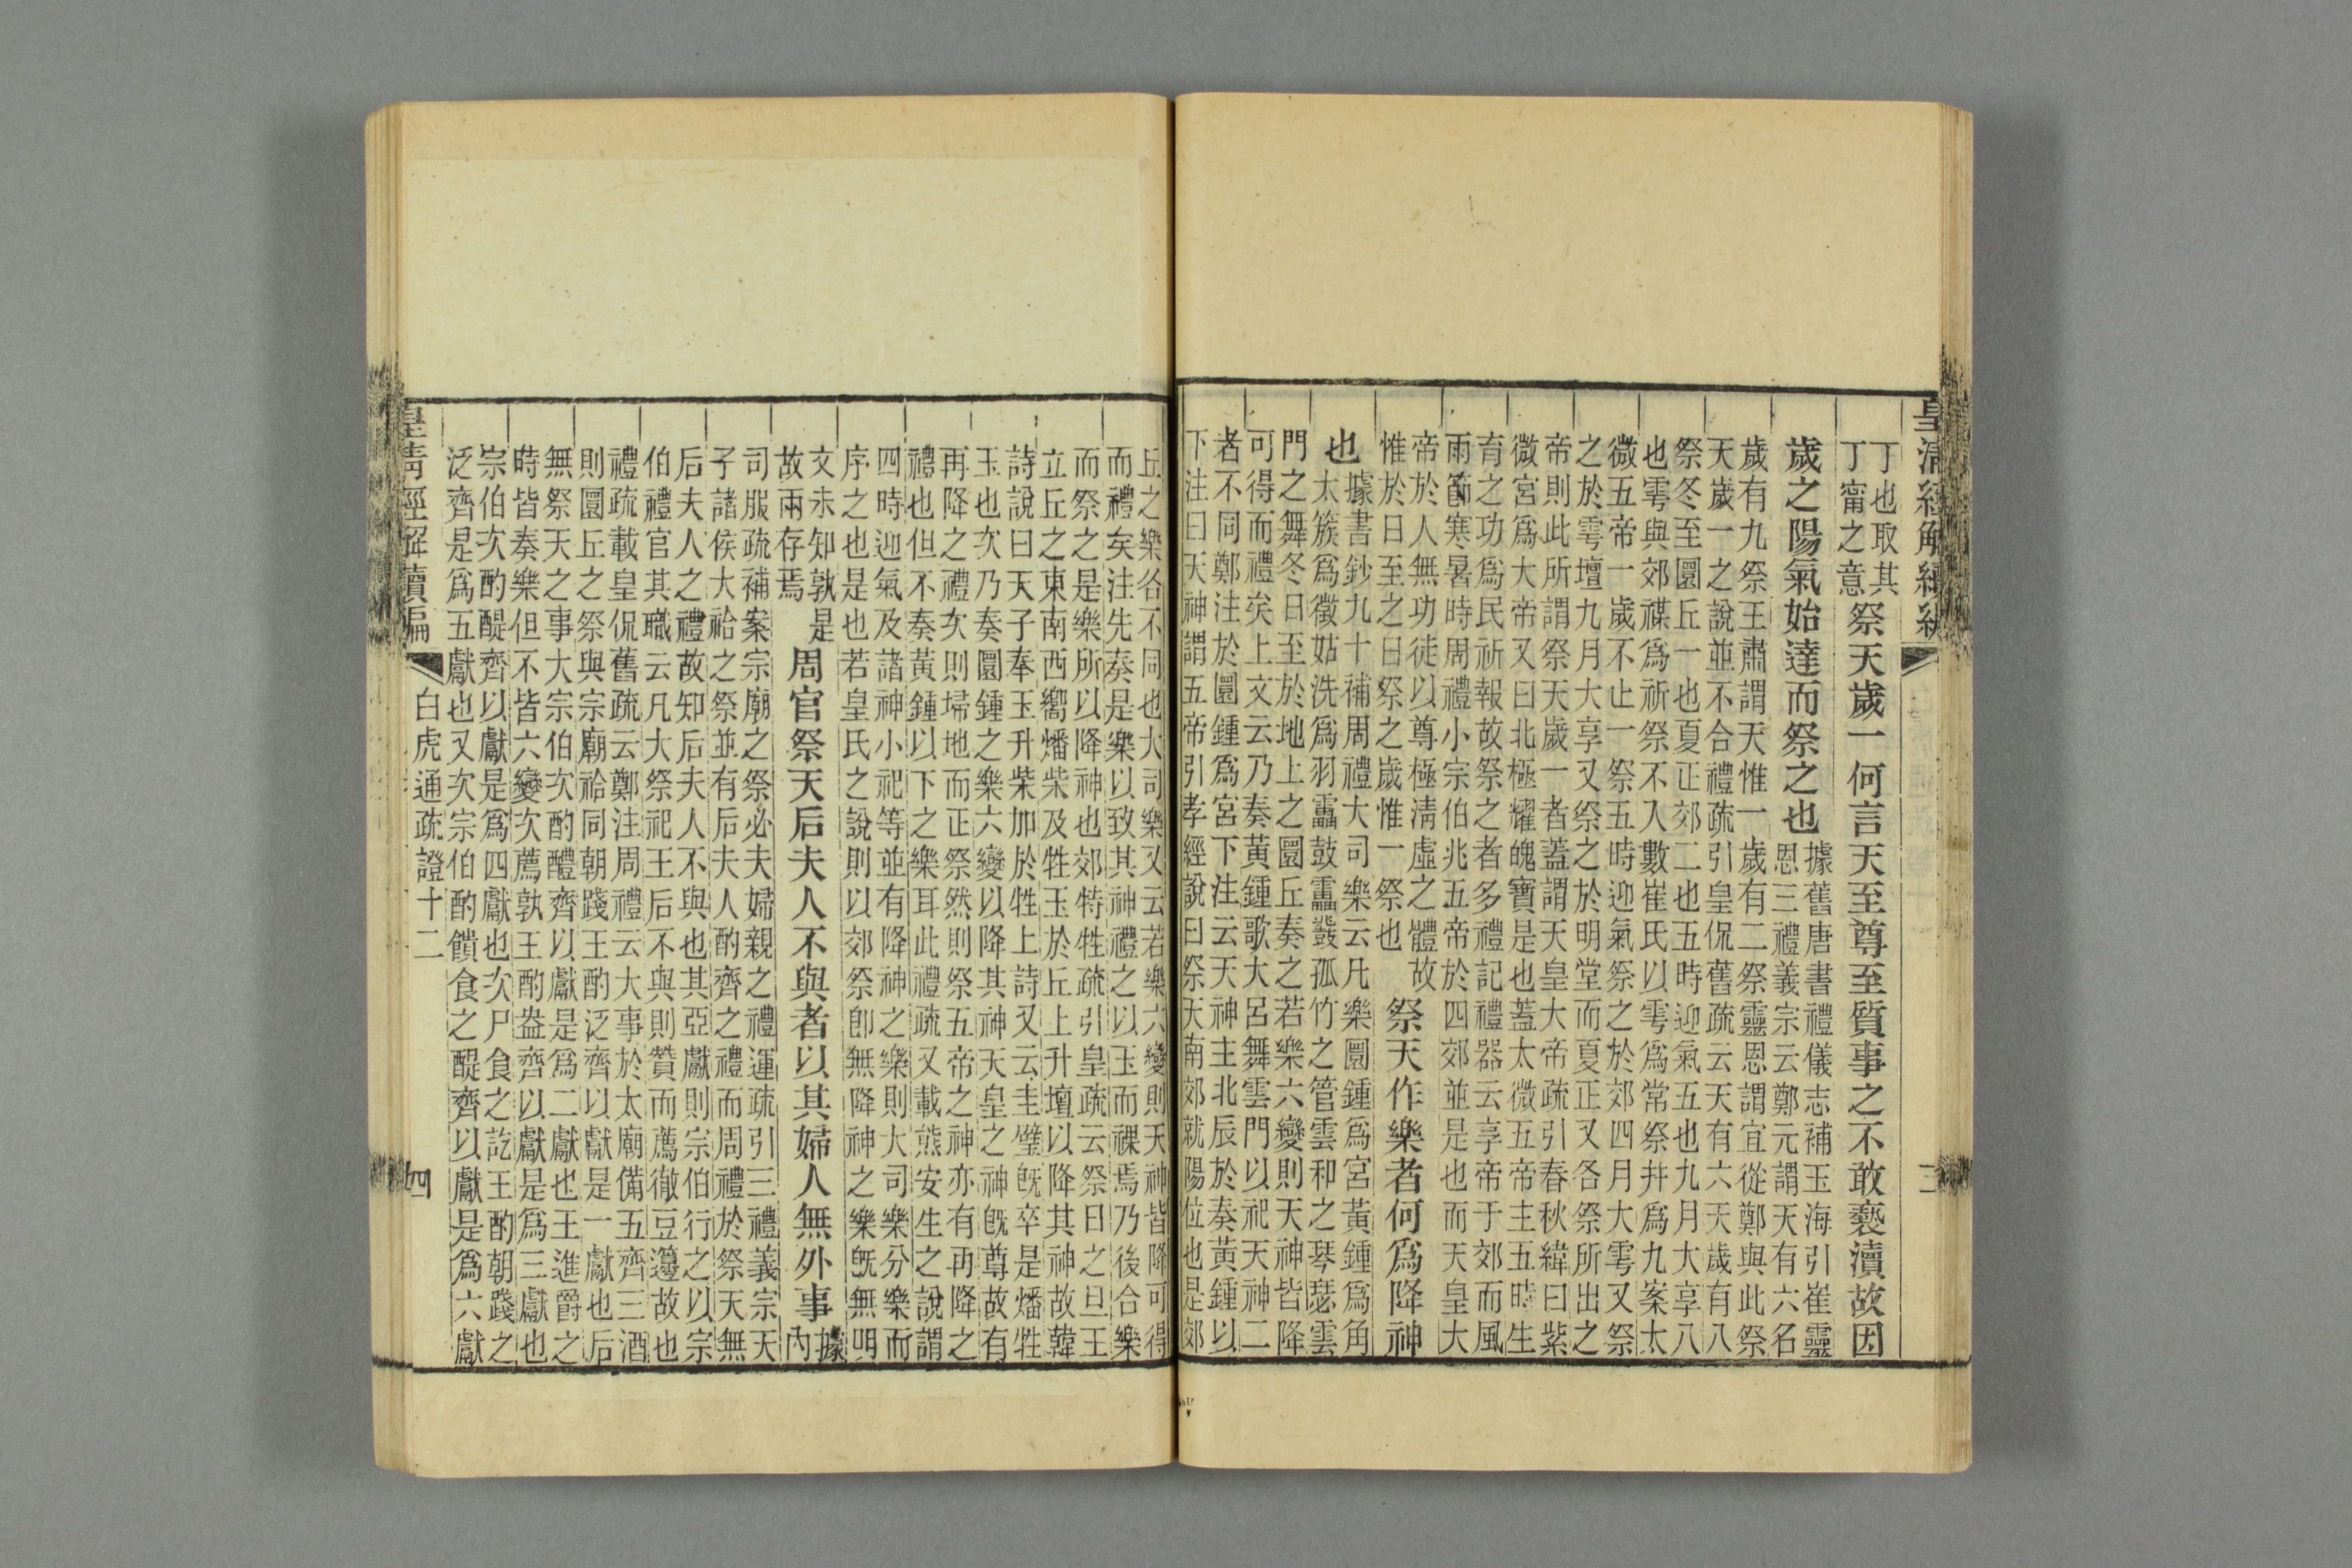 皇清經解續編 三
丁也取其
丁甯之意
祭天歲一何言天至尊至質事之不敢褻瀆故因
歲之陽氣始達而祭之也
據舊唐書禮儀志補玉海引崔靈
恩三禮義宗云鄭元謂天有六名
歲有九祭王肅謂天惟一歲有二祭靈恩謂宜從鄭與此祭
天歲一之說並不合禮疏引皇侃舊疏云天有六天歲有八
祭冬至圜丘一也夏正郊二也五時迎氣五也九月大享八
也雩與郊禖爲祈祭不入數崔氏以雩爲常祭幷爲九案太
微五帝一歲不止一祭五時迎氣祭之於郊四月大雩又祭
之於雩壇九月大享又祭之於明堂而夏正又各祭所出之
帝則此所謂祭天歲一者蓋謂天皇大帝疏引春秋緯曰紫
微宮爲大帝又曰北極耀魄寶是也蓋太微五帝主五時生
育之功爲民祈報故祭之者多禮記禮器云享帝于郊而風
雨節寒暑時周禮小宗伯兆五帝於四郊並是也而天皇大
帝於人無功徒以尊極淸虛之體故
惟於日至之日祭之歲惟一祭也
祭天作樂者何爲降神
也
據書鈔九十補周禮大司樂云凡樂圜鍾爲宮黃鍾爲角
太簇爲徵姑洗爲羽靁鼓靁鼗孤竹之管雲和之琴瑟雲
門之舞冬日至於地上之圜丘奏之若樂六變則天神皆降
可得而禮矣上文云乃奏黃鍾歌大呂舞雲門以祀天神二
者不同鄭注於圜鍾爲宮下注云天神主北辰於奏黃鍾以
下注曰天神謂五帝引孝經說曰祭天南郊就陽位也是郊
丘之樂各不同也大司樂又云若樂六變則天神皆降可得
而禮矣注先奏是樂以致其神禮之以玉而祼焉乃後合樂
而祭之是樂所以降神也郊特牲疏引皇疏云祭日之旦王
立丘之東南西嚮燔柴及牲玉於丘上升壇以降其神故韓
詩說曰天子奉玉升柴加於牲上詩又云圭璧旣卒是燔牲
玉也次乃奏圜鍾之樂六變以降其神天皇之神旣尊故有
再降之禮次則埽地而正祭然則祭五帝之神亦有再降之
禮也但不奏黃鍾以下之樂耳此禮疏又載熊安生之說謂
四時迎氣及諸神小祀等並有降神之樂則大司樂分樂而
序之也是也若皇氏之說則以郊祭卽無降神之樂旣無明
文未知孰是
故兩存焉
周官祭天后夫人不與者以其婦人無外事
據
內
司服疏補案宗廟之祭必夫婦親之禮運疏引三禮義宗天
子諸侯大祫之祭並有后夫人酌齊之禮而周禮於祭天無
后夫人之禮故知后夫人不與也其亞獻則宗伯行之以宗
伯禮官其職云凡大祭祀王后不與則贊而薦徹豆籩故也
禮疏載皇侃舊疏云鄭注周禮云大事於太廟備五齊三酒
則圜丘之祭與宗廟祫同朝踐王酌泛齊以獻是一獻也后
無祭天之事大宗伯次酌醴齊以獻是爲二獻也王進爵之
時皆奏樂但不皆六變次薦孰王酌盎齊以獻是爲三獻也
宗伯次酌醍齊以獻是爲四獻也次尸食之訖王酌朝踐之
泛齊是爲五獻也又次宗伯酌饋食之醍齊以獻是爲六獻
皇清經解續編 白虎通疏證十二 四